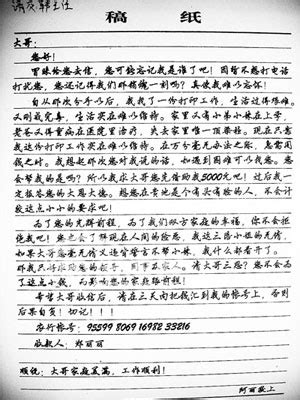 请交韩主任
稿 纸
大哥:
您好!
冒昧给您去信,您可能忘记我是谁了吧!因暂不想打电话
打扰您,您还记得我们那销魂一刻吗?真使我难以忘怀!
自从那次分手以后,我找了一份打印工作,生活过得很难。
又刚戒完毒,生活实在难以维持。家里又有小弟小妹在上学,
老爸又得胃病在医院里治疗,失去家里唯一顶梁柱。现在只靠
我这份打印工作实在难以维持。在万分毫无办法之际,急需用
钱之时。我想起那次您对我说的话,如遇到困难可以找您。您
会帮我的是吗?所以求大哥您先借给我5000元吧!过后我一
定报答您的大恩大德。想您在贵地是个有头有脸的人,不会计
较这点小小的要求吧!
为了您的光辉前程,为了我们双方家庭的幸福,你不会拒
绝我吧!您也会了解现在人间的险恶,我这三陪小姐的无情,
如果大哥您要无情又违背誓言不帮小妹,我什么都看开了。
那我只好求助您的领导,同事及家人。请大哥三思?您不会为
了这点小钱,而影响您的家庭跟前程!
希望大哥收信后,请在三天内把钱汇到我的帐号上,否则
后果自负!切记!!!
农行帐号:95599 8069 16982 33216
收款人:郑丽丽
顺祝:大哥家庭美满,工作顺利!
阿丽敬上